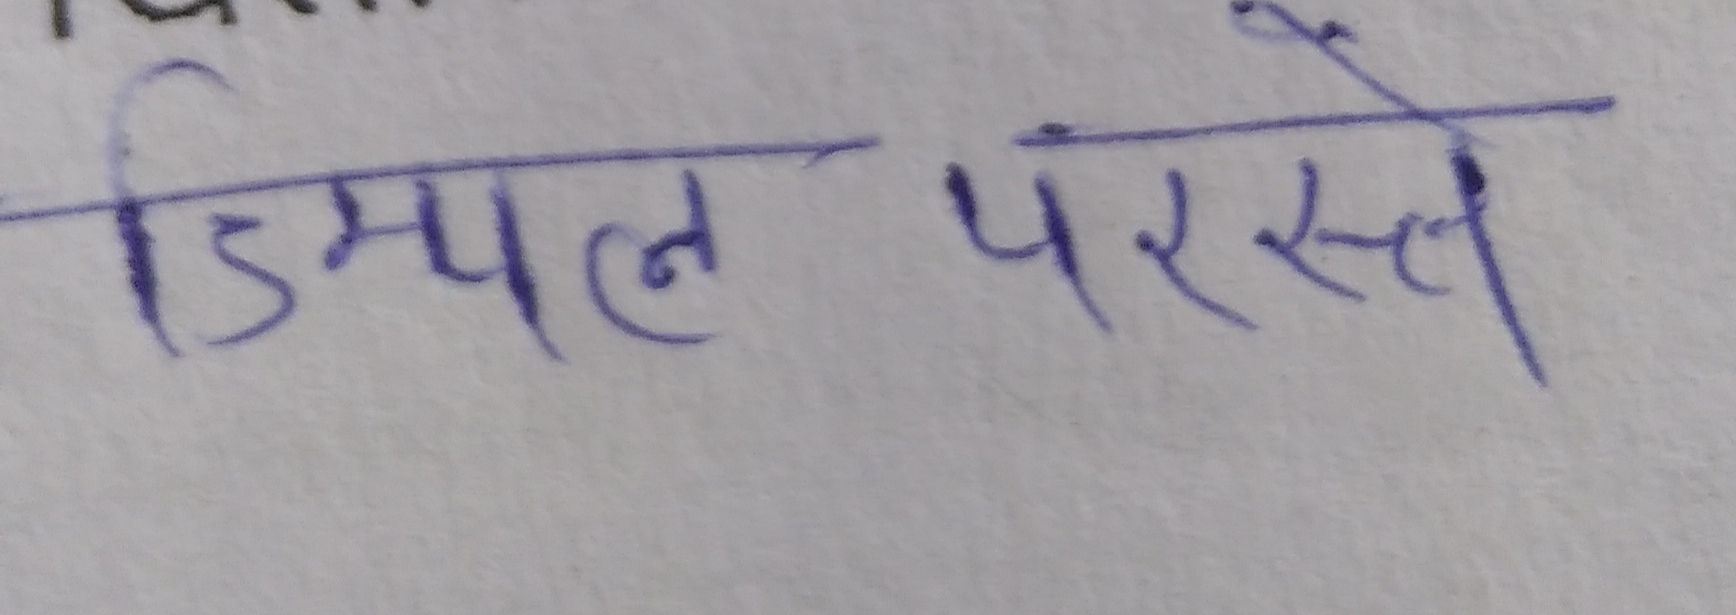 डिम्पल परस्ते